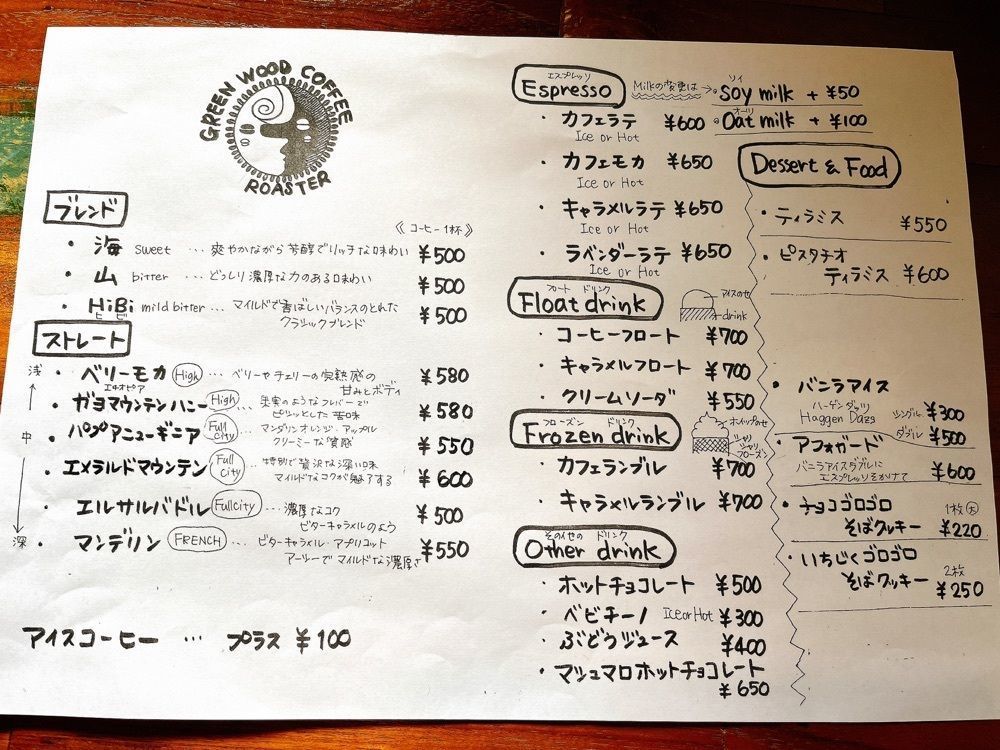 GREEN WOOD COFFEE
ROASTER
ブレンド
《コーヒー1杯》
・海 sweet … 爽やかながら芳醇でリッチな味わい ¥500
・山 bitter … どっしり濃厚な力のある味わい ¥500
・HiBi mild bitter … マイルドで香ばしいバランスのとれた ¥500
ヒビ
クラシックブレンド
ストレート
浅
中
深
・ベリーモカ High … ベリーやチェリーの完熟感の ¥580
エチオピア
甘みとボディ
・ガヨマウンテンハニー High … 果実のようなフレバーで ¥580
ピリッとした苦味
・パプアニューギニア Full city … マンダリンオレンジ・アップル ¥550
クリーミーな質感
・エメラルドマウンテン Full City … 特別で贅沢な深い味 ¥600
マイルドなコクが魅了する
・エルサルバドル Fullcity … 濃厚なコク ¥500
ビターキャラメルのよう
・マンデリン FRENCH … ビターキャラメル・アプリコット ¥550
アーシーでマイルドな濃厚さ
アイスコーヒー … プラス ¥100
エスプレッソ
Espresso
Milkの変更は→
ソイ
Soy milk + ¥50
オーツ
Oat milk + ¥100
・カフェラテ ¥600
Ice or Hot
・カフェモカ ¥650
Ice or Hot
・キャラメルラテ ¥650
Ice or Hot
・ラベンダーラテ ¥650
Ice or Hot
フロート ドリンク
Float drink
アイスのせ
drink
・コーヒーフロート ¥700
・キャラメルフロート ¥700
・クリームソーダ ¥550
フローズン ドリンク
Frozen drink
ホイップのせ
シャリシャリフローズン
・カフェランブル ¥700
・キャラメルランブル ¥700
その他の ドリンク
Other drink
・ホットチョコレート ¥500
・ベビチーノ Ice or Hot ¥300
・ぶどうジュース ¥400
・マシュマロホットチョコレート
¥650
Dessert & Food
・ティラミス ¥550
・ピスタチオ
ティラミス ¥600
・バニラアイス
ハーゲンダッツ
Haggen Dazs
シングル ¥300
ダブル ¥500
・アフォガード
バニラアイスダブルに
エスプレッソをかけて ¥600
・チョコゴロゴロ 1枚 大
そばクッキー ¥220
・いちじくゴロゴロ
2枚
そばクッキー ¥250